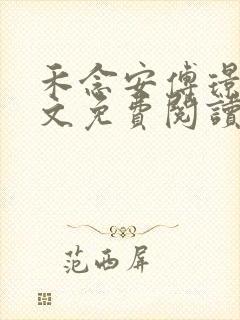 禾念安傅璟
文免費閱讀
范西屏